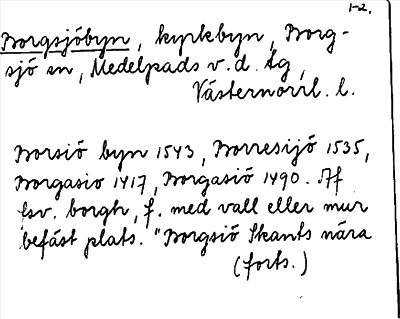 1-2.
Borgsjöbyn, kyrkbyn, Borg-
sjö sn, Medelpads v. d. tg,
Västernorrl. l.
Borsiö byn 1543, Borresijö 1535,
Borgasio 1417, Borgasiö 1490. Af
fsv. borgh, f. med vall eller mur
befäst plats. "Borgsiö Skants nära
(forts.)